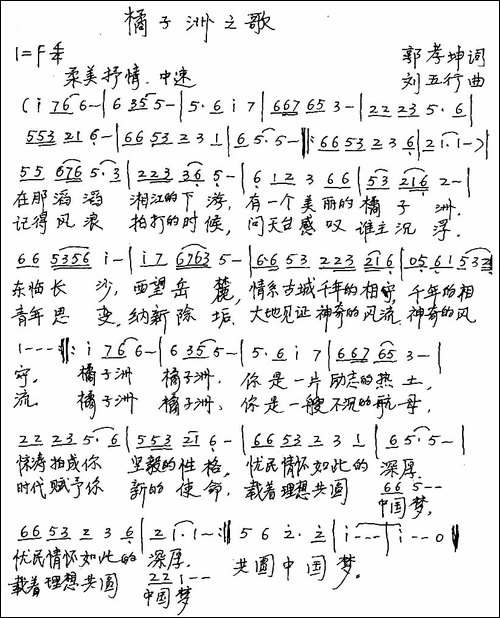 橘子洲之歌
1=F 4/4 郭孝坤词
柔美抒情 中速 刘五行曲
(i 76 6-|6 35 5-|5·6 i 7|667 65 3-|22 23 5·6|
553 21 6-|66 53 2 3 1|6 5·5-‖:66 53 2 3 6|2 1·1->|
55 676 5·3|223 36 5-|6 1 2 3 66|53 216 2-|
在那滔滔 湘江的下游,有一个美丽的橘子洲.
记得风浪 拍打的时候,问天台感叹 谁主沉浮.
66 5356 i-|i 7 6763 5-|6·6 53 223 216|05 61 5321|
东临长沙,西望岳麓,情系古城千年的相守,千年的相
青年思变,纳新除垢.大地见证神奇的风流.神奇的风
1---:‖:i 76 6-|6 35 5-|5·6 i 7|667 65 3-|
守. 橘子洲 橘子洲.你是一片励志的热土,
流. 橘子洲 橘子洲.你是一艘不沉的航母,
22 23 5·6|553 21 6-|66 53 2 3 1|6 5·5-|
惊涛拍成你 坚毅的性格,忧民情怀如此的 深厚.
时代赋予你 新的使命,载着理想共圆 66 5--
中国梦.
66 53 2 3 6|2 1·1-:‖5 6 2·2|i---|i--0‖
忧民情怀如此的 深厚. 共圆中国梦.
载着理想共圆 22 1--
中国梦